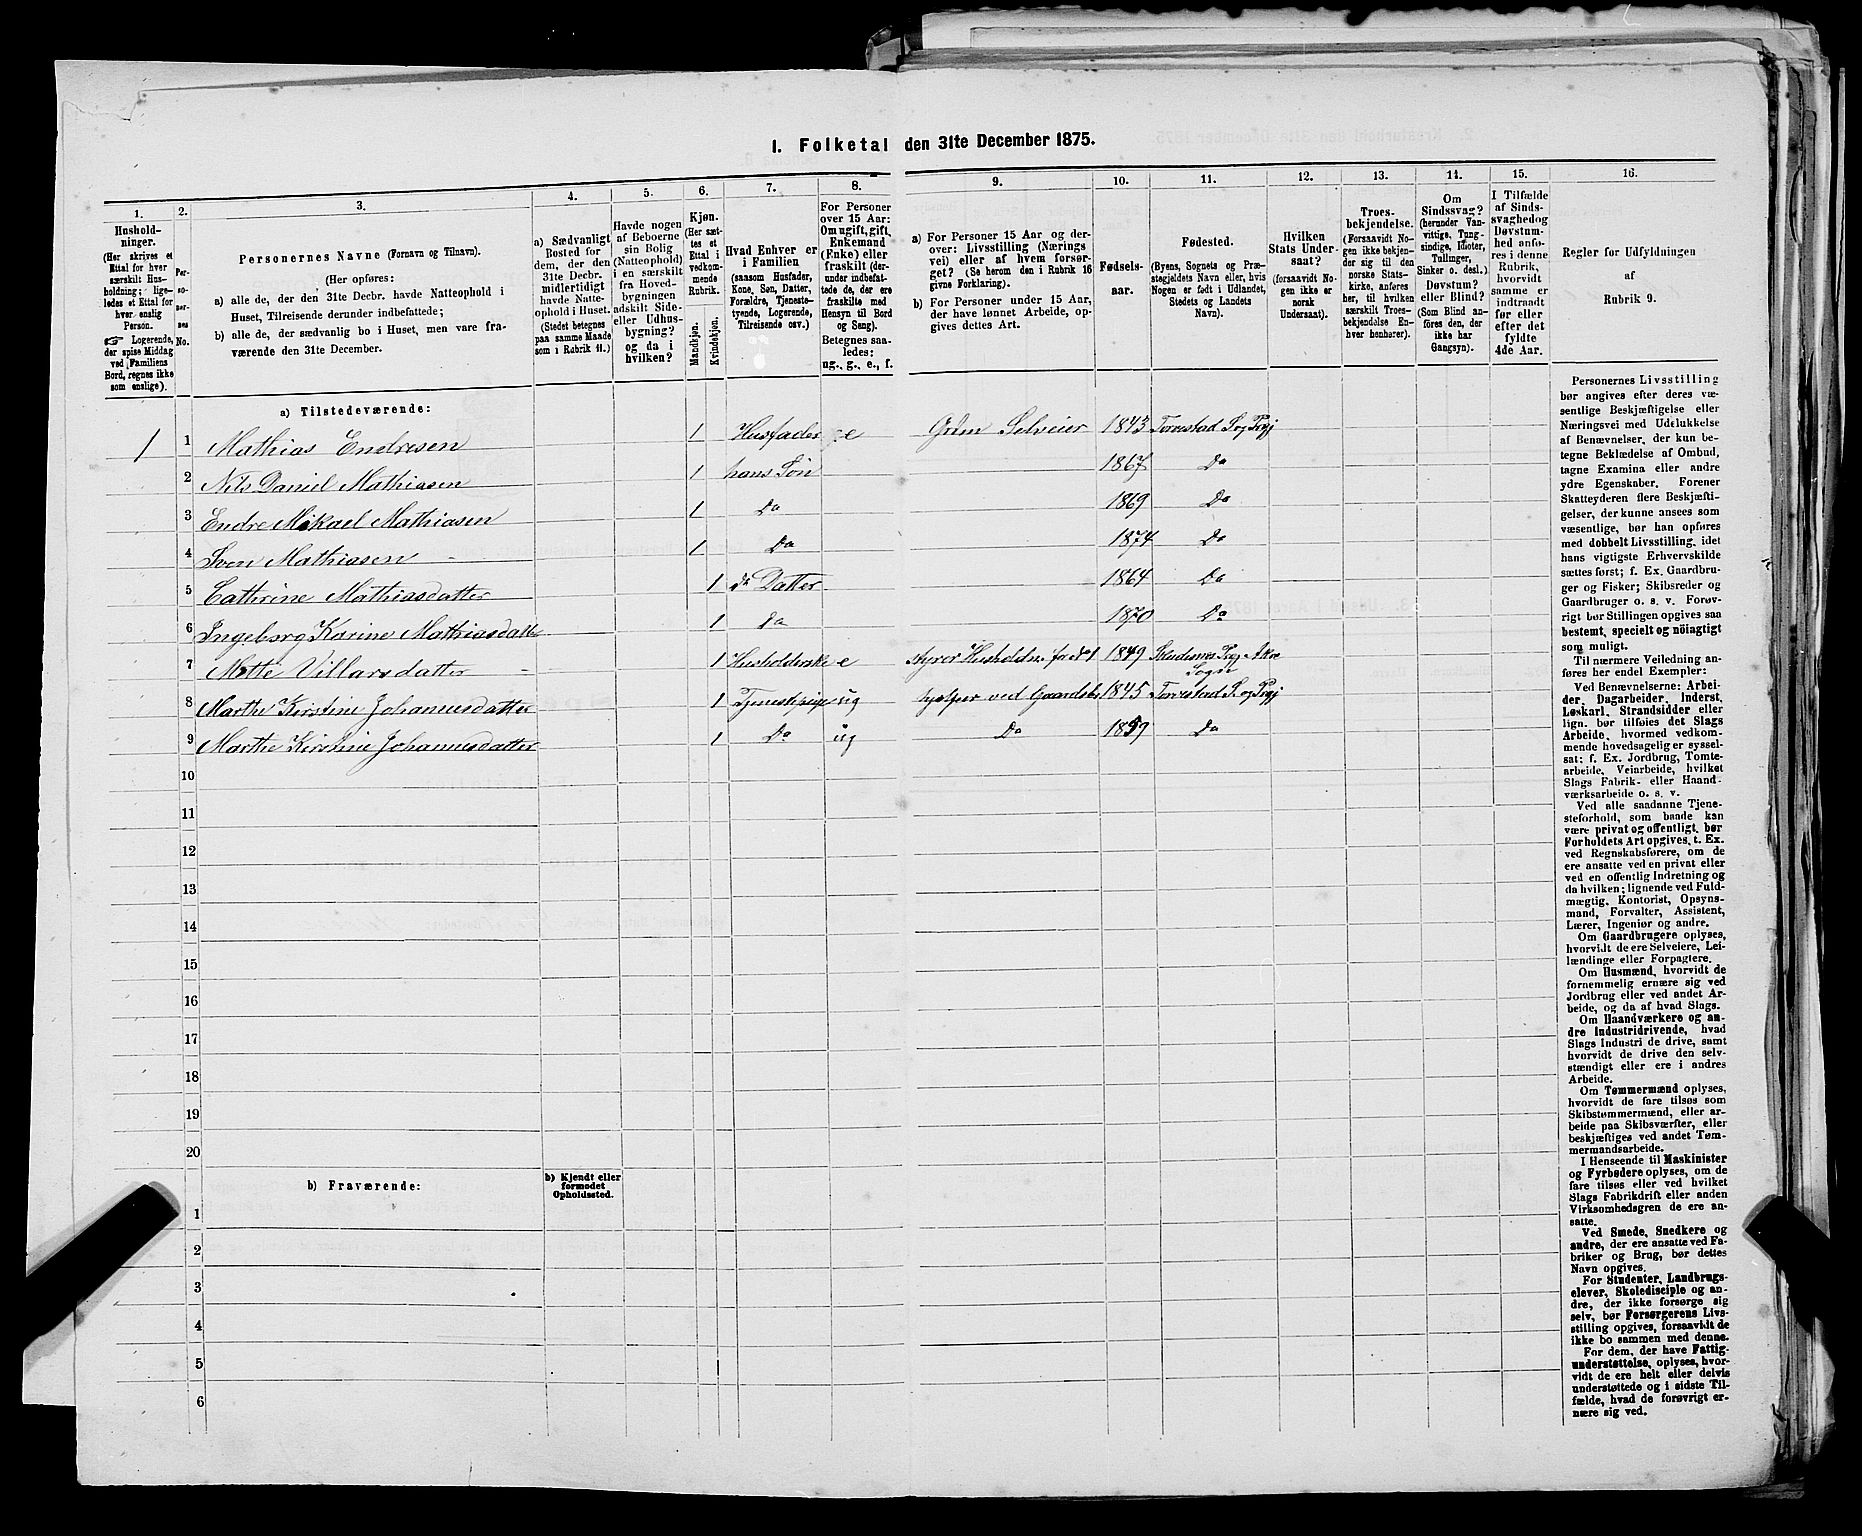 1. Folketal den 31te December 1875.
1. 2. 3. 4. 5. 6. 7. 8. 9. 10. 11. 12. 13. 14. 15. 16.
Husholdninger.
(Her skrives et
Ettal for hver
særskilt Husholdning; ligeledes et Ettal for
hver enslig
Person.
☛ Logerende,
der spise Middag
ved Familiens
Bord, regnes ikke
som enslige).
Personernes No.
Personernes Navne (Fornavn og Tilnavn).
(Her opføres:
a) alle de, der den 31te Decbr. havde Natteophold i
Huset, Tilreisende derunder indbefattede;
b) alle de, der sædvanlig bo i Huset, men vare fraværende den 31te December.
a) Sædvanligt
Bosted for
dem, der den
31te Decbr.
midlertidigt
havde Natteophold i Huset.
(Stedet betegnes
paa samme Maade
som i Rubrik 11.)
Havde nogen
af Beboerne
sin Bolig
(Natteophold)
i en særskilt
fra Hovedbygningen
adskilt Side-
eller Udhusbygning?
og da i
hvilken?
Kjøn.
(Her sættes et
Ettal i
vedkommende
Rubrik.
Mandkjøn.
Kvindekjøn.
Hvad Enhver er
i Familien
(saasom Husfader,
Kone, Søn, Datter,
Forældre, Tjenestetyende, Logerende,
Tilreisende osv.)
For Personer
over 15 Aar:
Om ugift, gift,
Enkemand
(Enke) eller
fraskilt (derunder indbefattede de, der ere
fraskilte med
Hensyn til Bord
og Seng).
Betegnes saaledes:
ug., g., e., f.
a) For Personer 15 Aar og derover: Livsstilling (Næringsvei) eller af hvem forsørget? (Se herom den i Rubrik 16
givne Forklaring).
b) For Personer under 15 Aar,
der have lønnet Arbeide, opgives dettes Art.
Fødselsaar.
Fødested.
(Byens, Sognets og Præstegjeldets Navn eller, hvis
Nogen er født i Udlandet,
Stedets og Landets
Navn).
Hvilken
Stats Undersaat?
(forsaavidt Nogen ikke er
norsk
Undersaat).
Troesbekjendelse.
(Forsaavidt Nogen ikke bekjender sig til den
norske Statskirke, anføres
her, til hvilken
særskilt Troesbekjendelse Enhver henhører).
Om
Sindssvag?
(herunder Vanvittige, Tungsindige, Idioter,
Tullinger,
Sinker o. desl.)
Døvstum?
eller Blind?
(Som Blind anføres den, der
ikke har
Gangsyn).
I Tilfælde
af Sindssvaghed og
Døvstumhed anføres i denne
Rubrik,
hvorvidt
samme er
indtraadt
før eller
efter det
fyldte
4de Aar.
Regler for Udfyldningen
af
Rubrik 9.
a) Tilstedeværende:
1 1 Mathias Endresen 1 Husfader e Grdm Selveier 1843 Torvestad S og Prgj
2 Nils Daniel Mathiasen 1 hans Søn 1867 Do
3 Endre Mikael Mathiasen 1 Do 1869 Do
4 Sven Mathiasen 1 Do 1874 Do
5 Cathrine Mathiasdatter 1 ds Datter 1864 Do
6 Ingeborg Karine Mathiasdatter 1 Do 1870 Do
7 Mette Villarsdatter 1 Husholderske e styrer Husholdn. for No 1 1849 Skudesnes Prgj Akre Sogn
8 Marthe Kirstine Johannesdatter 1 Tjenestepige ug hjelper ved Gaardsbr 1845 Torvestad S. og Prgj
9 Marthe Kirstine Johannesdatter 1 Do ug Do 1859 Do
10
11
12
13
14
15
16
17
18
19
20
b) Fraværende:
b) Kjendt eller
formodet
Opholdssted.
1
2
3
4
5
6
Personernes Livsstilling
bør angives efter deres væsentlige Beskjæftigelse eller
Næringsvei med Udelukkelse
af Benævnelser, der kun betegne Beklædelse af Ombud,
tagne Examina eller andre
ydre Egenskaber. Forener
Skatteyderen flere Beskjæftigelser, der kunne ansees som
væsentlige, bør han opføres
med dobbelt Livsstilling, idet
hans vigtigste Erhvervskilde
sættes først; f. Ex. Gaardbruger og Fisker; Skibsreder og
Gaardbruger o. s. v. Forøvrigt bør Stillingen opgives saa
bestemt, specielt og nöiagtigt
som muligt.
Til nærmere Veiledning anføres her endel Exempler:
Ved Benævnelserne: Arbeider, Dagarbeider, Inderst,
Løskarl, Strandsidder eller
lign. bør tilføies det Slags
Arbeide, hvormed vedkommende hovedsagelig er sysselsat: f. Ex. Jordbrug, Tomtearbeide, Veiarbeide, hvilket
Slags Fabrik- eller Haandværksarbeide o. s. v.
Ved alle saadanne Tjenesteforhold, som baade kan
være privat og offentligt, bør
Forholdets Art opgives, t. Ex.
ved Regnskabsførere, om de
ere ansatte ved en privat eller
ved en offentlig Indretning og
da hvilken; lignende ved Fuldmægtig, Kontorist, Opsynsmand, Forvalter, Assistent,
Lærer, Ingeniør og andre.
Om Gaardbrugere oplyses,
hvorvidt de ere Selveiere, Leilændinge eller Forpagtere.
Om Husmænd, hvorvidt de
fornemmelig ernære sig ved
Jordbrug eller ved andet Arbeide, og da af hvad Slags.
Om Haandværkere og andre Industridrivende, hvad
Slags Industri de drive, samt
hvorvidt de drive den selvstændigt eller ere i andres
Arbeide.
Om Tømmermænd oplyses,
hvorvidt de fare tilsøs som
Skibstømmermænd, eller arbeide paa Skibsværfter, eller
beskjæftiges ved andet Tømmermandsarbeide.
I Henseende til Maskinister
og Fyrbødere oplyses, om de
fare tilsøs eller ved hvilket
Slags Fabrikdrift eller anden
Virksomhedsgren de ere ansatte.
Ved Smede, Snedkere og
andre, der ere ansatte ved Fabriker og Brug, bør dettes
Navn opgives.
For Studenter, Landbrugselever, Skoledisciple og andre, der ikke forsørge sig
selv, bør Forsørgerens Livsstilling opgives, forsaavidt de
ikke bo sammen med denne.
For dem, der have Fattigunderstøttelse, oplyses, hvorvidt de ere helt eller delvis
understøttede og i sidste Tilfælde, hvad de forøvrigt ernære sig ved.